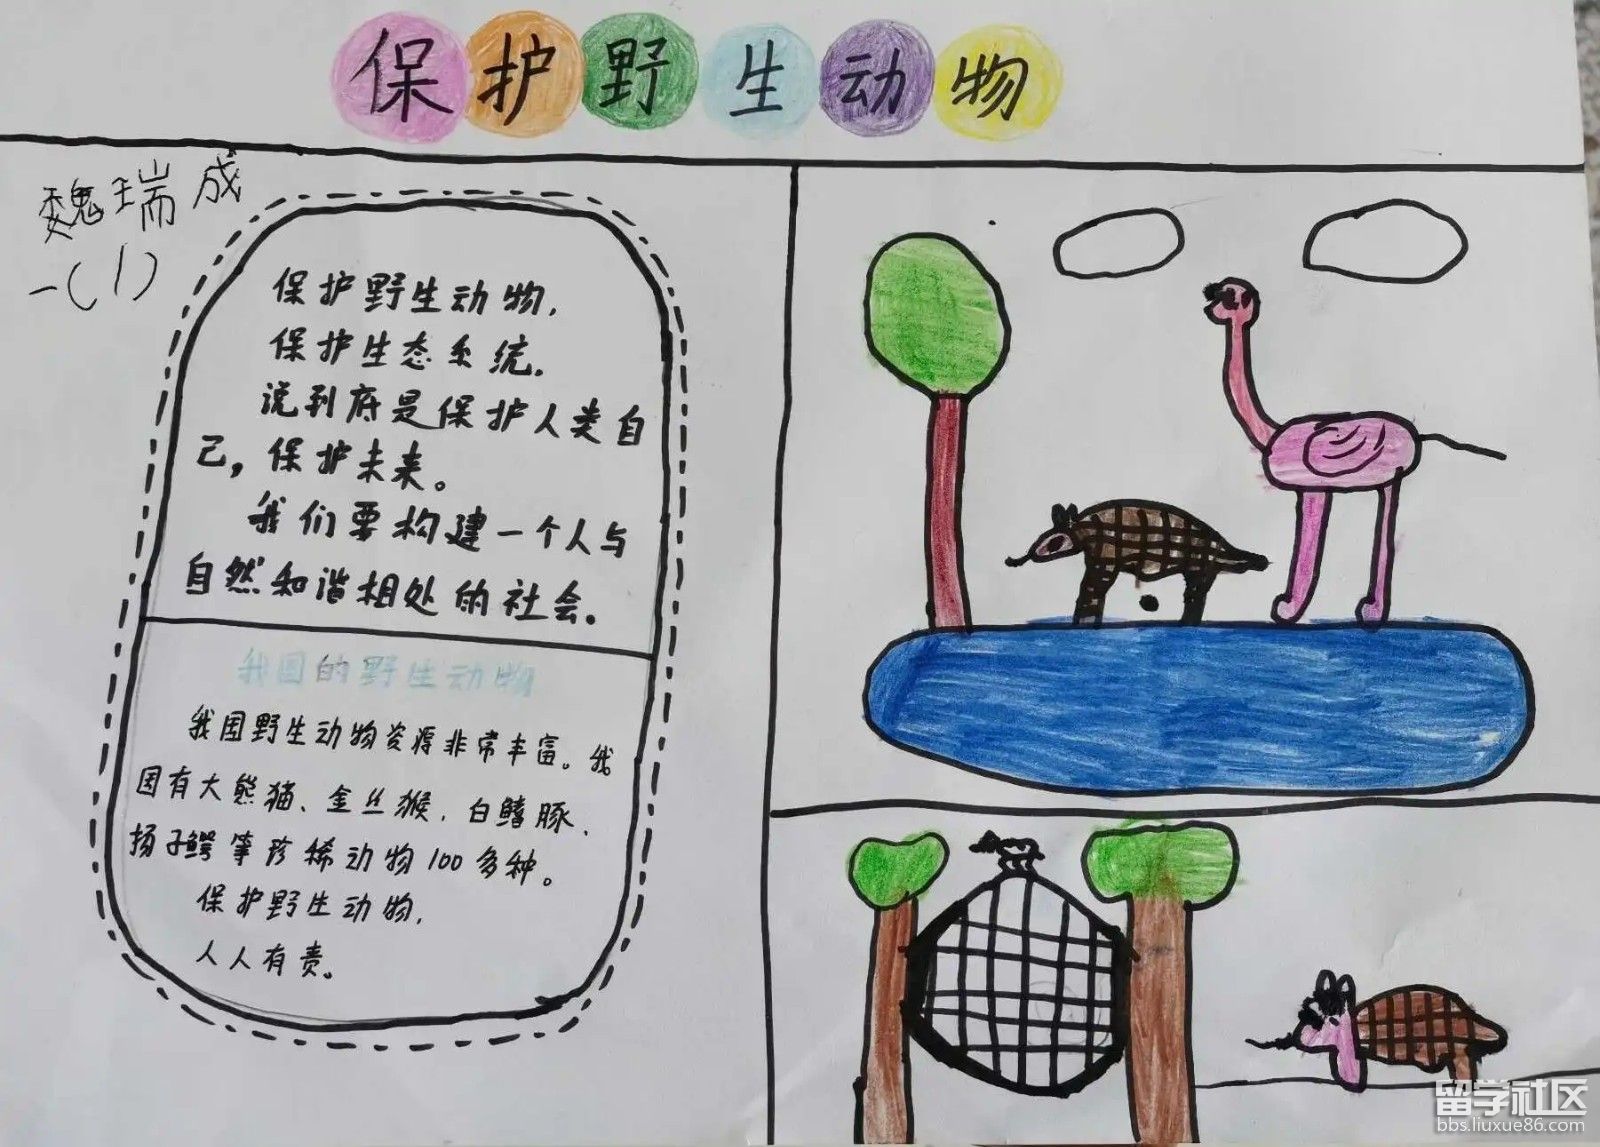 保护野生动物
魏瑞成
一(1)
保护野生动物,
保护生态系统.
说到底是保护人类自
己,保护未来。
我们要构建一个人与
自然和谐相处的社会。
我国的野生动物
我国野生动物资源非常丰富。我
国有大熊猫、金丝猴、白鳍豚、
扬子鳄等珍稀动物100多种。
保护野生动物,
人人有责。
留学社区
bbs.liuxue86.com